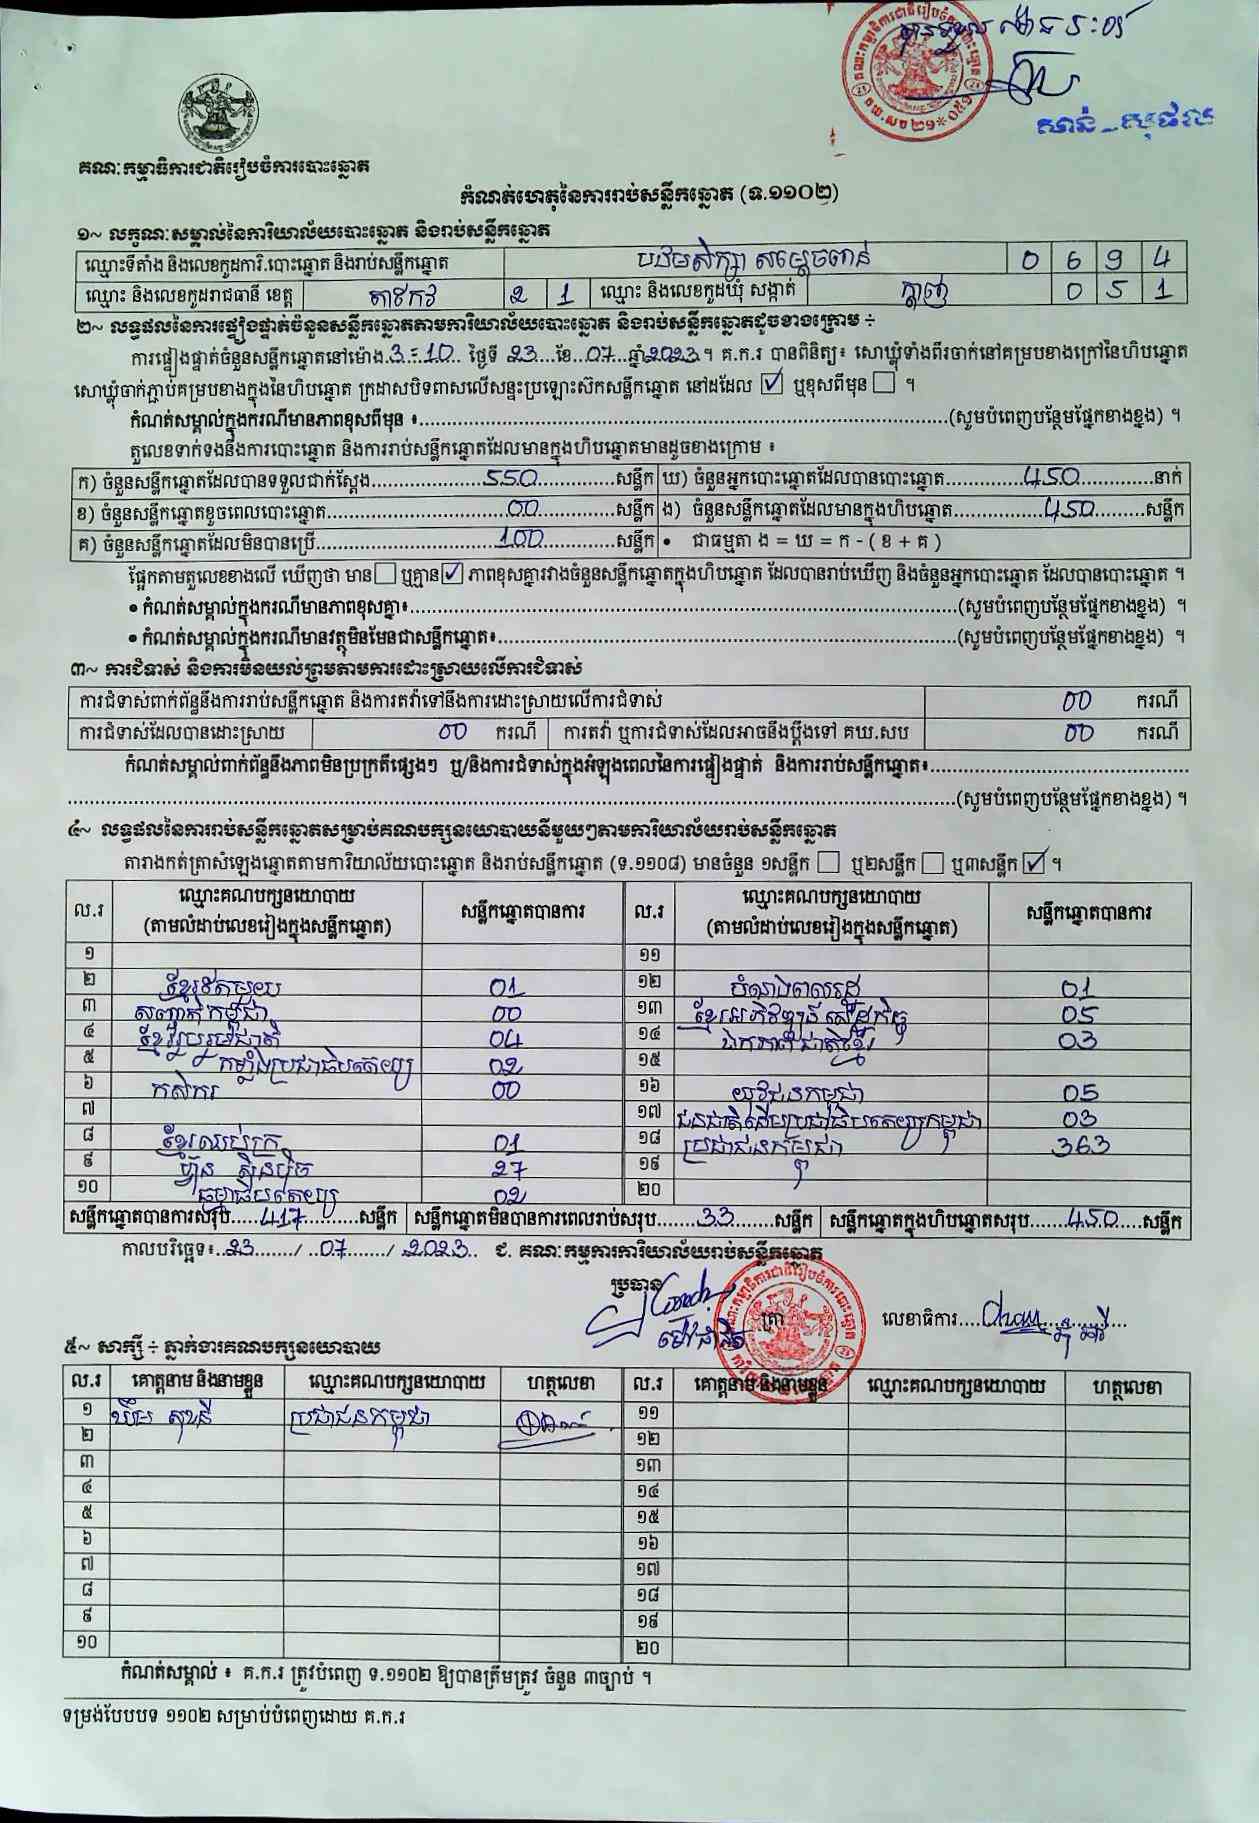 គណៈកម្មាធិការជាតិរៀបចំការបោះឆ្នោត
កំណត់ហេតុនៃការរាប់សន្លឹកឆ្នោត (ទ.១១០២)
១~ លក្ខណៈសម្គាល់នៃការិយាល័យបោះឆ្នោត និងរាប់សន្លឹកឆ្នោត
ឈ្មោះទីតាំង និងលេខកូដការិ.បោះឆ្នោត និងរាប់សន្លឹកឆ្នោត បឋមសិក្សា សម្តេចពាន់ 0 6 9 4
ឈ្មោះ និងលេខកូដរាជធានី ខេត្ត តាកែវ 2 1 ឈ្មោះ និងលេខកូដឃុំ សង្កាត់ ក្ដាញ់ 0 5 1
២~ លទ្ធផលនៃការផ្ទៀងផ្ទាត់ចំនួនសន្លឹកឆ្នោតតាមការិយាល័យបោះឆ្នោត និងរាប់សន្លឹកឆ្នោតដូចខាងក្រោម ÷
ការផ្ទៀងផ្ទាត់ចំនួនសន្លឹកឆ្នោតនៅម៉ោង 3:10 ថ្ងៃទី 23 ខែ 07 ឆ្នាំ 2023 ។ គ.ក.រ បានពិនិត្យ៖ សោឃ្លុំទាំងពីរចាក់នៅគម្របខាងក្រៅនៃហិបឆ្នោត
សោឃ្លុំចាក់ភ្ជាប់គម្របខាងក្នុងនៃហិបឆ្នោត ក្រដាសបិទពាសលើសន្ទះប្រឡោះស៊កសន្លឹកឆ្នោត នៅដដែល ☑ ឬខុសពីមុន ☐ ។
កំណត់សម្គាល់ក្នុងករណីមានភាពខុសពីមុន ៖ (សូមបំពេញបន្ថែមផ្នែកខាងខ្នង) ។
តួលេខទាក់ទងនឹងការបោះឆ្នោត និងការរាប់សន្លឹកឆ្នោតដែលមានក្នុងហិបឆ្នោតមានដូចខាងក្រោម ៖
ក) ចំនួនសន្លឹកឆ្នោតដែលបានទទួលជាក់ស្តែង 550 សន្លឹក ឃ) ចំនួនអ្នកបោះឆ្នោតដែលបានបោះឆ្នោត 450 នាក់
ខ) ចំនួនសន្លឹកឆ្នោតខូចពេលបោះឆ្នោត 00 សន្លឹក ង) ចំនួនសន្លឹកឆ្នោតដែលមានក្នុងហិបឆ្នោត 450 សន្លឹក
គ) ចំនួនសន្លឹកឆ្នោតដែលមិនបានប្រើ 100 សន្លឹក • ជាធម្មតា ង = ឃ = ក - ( ខ + គ )
ផ្អែកតាមតួលេខខាងលើ ឃើញថា មាន ☐ ឬគ្មាន ☑ ភាពខុសគ្នារវាងចំនួនសន្លឹកឆ្នោតក្នុងហិបឆ្នោត ដែលបានរាប់ឃើញ និងចំនួនអ្នកបោះឆ្នោត ដែលបានបោះឆ្នោត ។
• កំណត់សម្គាល់ក្នុងករណីមានភាពខុសគ្នា៖ (សូមបំពេញបន្ថែមផ្នែកខាងខ្នង) ។
• កំណត់សម្គាល់ក្នុងករណីមានវត្ថុមិនមែនជាសន្លឹកឆ្នោត៖ (សូមបំពេញបន្ថែមផ្នែកខាងខ្នង) ។
៣~ ការជំទាស់ និងការមិនយល់ព្រមតាមការដោះស្រាយលើការជំទាស់
ការជំទាស់ពាក់ព័ន្ធនឹងការរាប់សន្លឹកឆ្នោត និងការតវ៉ាទៅនឹងការដោះស្រាយលើការជំទាស់ 00 ករណី
ការជំទាស់ដែលបានដោះស្រាយ 00 ករណី ការតវ៉ា ឬការជំទាស់ដែលអាចនឹងប្តឹងទៅ គឃ.សប 00 ករណី
កំណត់សម្គាល់ពាក់ព័ន្ធនឹងភាពមិនប្រក្រតីផ្សេងៗ ឬ/និងការជំទាស់ក្នុងអំឡុងពេលនៃការផ្ទៀងផ្ទាត់ និងការរាប់សន្លឹកឆ្នោត៖
(សូមបំពេញបន្ថែមផ្នែកខាងខ្នង) ។
៤~ លទ្ធផលនៃការរាប់សន្លឹកឆ្នោតសម្រាប់គណបក្សនយោបាយនីមួយៗតាមការិយាល័យរាប់សន្លឹកឆ្នោត
តារាងកត់ត្រាសំឡេងឆ្នោតតាមការិយាល័យបោះឆ្នោត និងរាប់សន្លឹកឆ្នោត (ទ.១១០៨) មានចំនួន ១សន្លឹក ☐ ឬ២សន្លឹក ☐ ឬ៣សន្លឹក ☑ ។
ល.រ ឈ្មោះគណបក្សនយោបាយ (តាមលំដាប់លេខរៀងក្នុងសន្លឹកឆ្នោត) សន្លឹកឆ្នោតបានការ ល.រ ឈ្មោះគណបក្សនយោបាយ (តាមលំដាប់លេខរៀងក្នុងសន្លឹកឆ្នោត) សន្លឹកឆ្នោតបានការ
១ ១១
២ ខ្មែរតែមួយ 01 ១២ បំណងពលរដ្ឋ 01
៣ សញ្ជាតិកម្ពុជា 00 ១៣ ខ្មែរអភិវឌ្ឍន៍សេដ្ឋកិច្ច 05
៤ ខ្មែររួបរួមជាតិ 04 ១៤ ឯកភាពជាតិខ្មែរ 03
៥ កម្លាំងប្រជាធិបតេយ្យ 02 ១៥
៦ កសិករ 00 ១៦ យុវជនកម្ពុជា 05
៧ ១៧ ជនជាតិដើមប្រជាធិបតេយ្យកម្ពុជា 03
៨ ខ្មែរឈប់ក្រ 01 ១៨ ប្រជាជនកម្ពុជា 363
៩ ហ្វ៊ុន ស៊ិនប៉ិច 27 ១៩
១០ ធម្មាធិបតេយ្យ 02 ២០
សន្លឹកឆ្នោតបានការសរុប 417 សន្លឹក សន្លឹកឆ្នោតមិនបានការពេលរាប់សរុប 33 សន្លឹក សន្លឹកឆ្នោតក្នុងហិបឆ្នោតសរុប 450 សន្លឹក
កាលបរិច្ឆេទ៖ 23 / 07 / 2023 ជ. គណៈកម្មការការិយាល័យរាប់សន្លឹកឆ្នោត
ប្រធាន ត្រា លេខាធិការ
៥~ សាក្សី ÷ ភ្នាក់ងារគណបក្សនយោបាយ
ល.រ គោត្តនាម និងនាមខ្លួន ឈ្មោះគណបក្សនយោបាយ ហត្ថលេខា ល.រ គោត្តនាម និងនាមខ្លួន ឈ្មោះគណបក្សនយោបាយ ហត្ថលេខា
១ ប្រជាជនកម្ពុជា ១១
២ ១២
៣ ១៣
៤ ១៤
៥ ១៥
៦ ១៦
៧ ១៧
៨ ១៨
៩ ១៩
១០ ២០
កំណត់សម្គាល់ ៖ គ.ក.រ ត្រូវបំពេញ ទ.១១០២ ឱ្យបានត្រឹមត្រូវ ចំនួន ៣ច្បាប់ ។
ទម្រង់បែបបទ ១១០២ សម្រាប់បំពេញដោយ គ.ក.រ